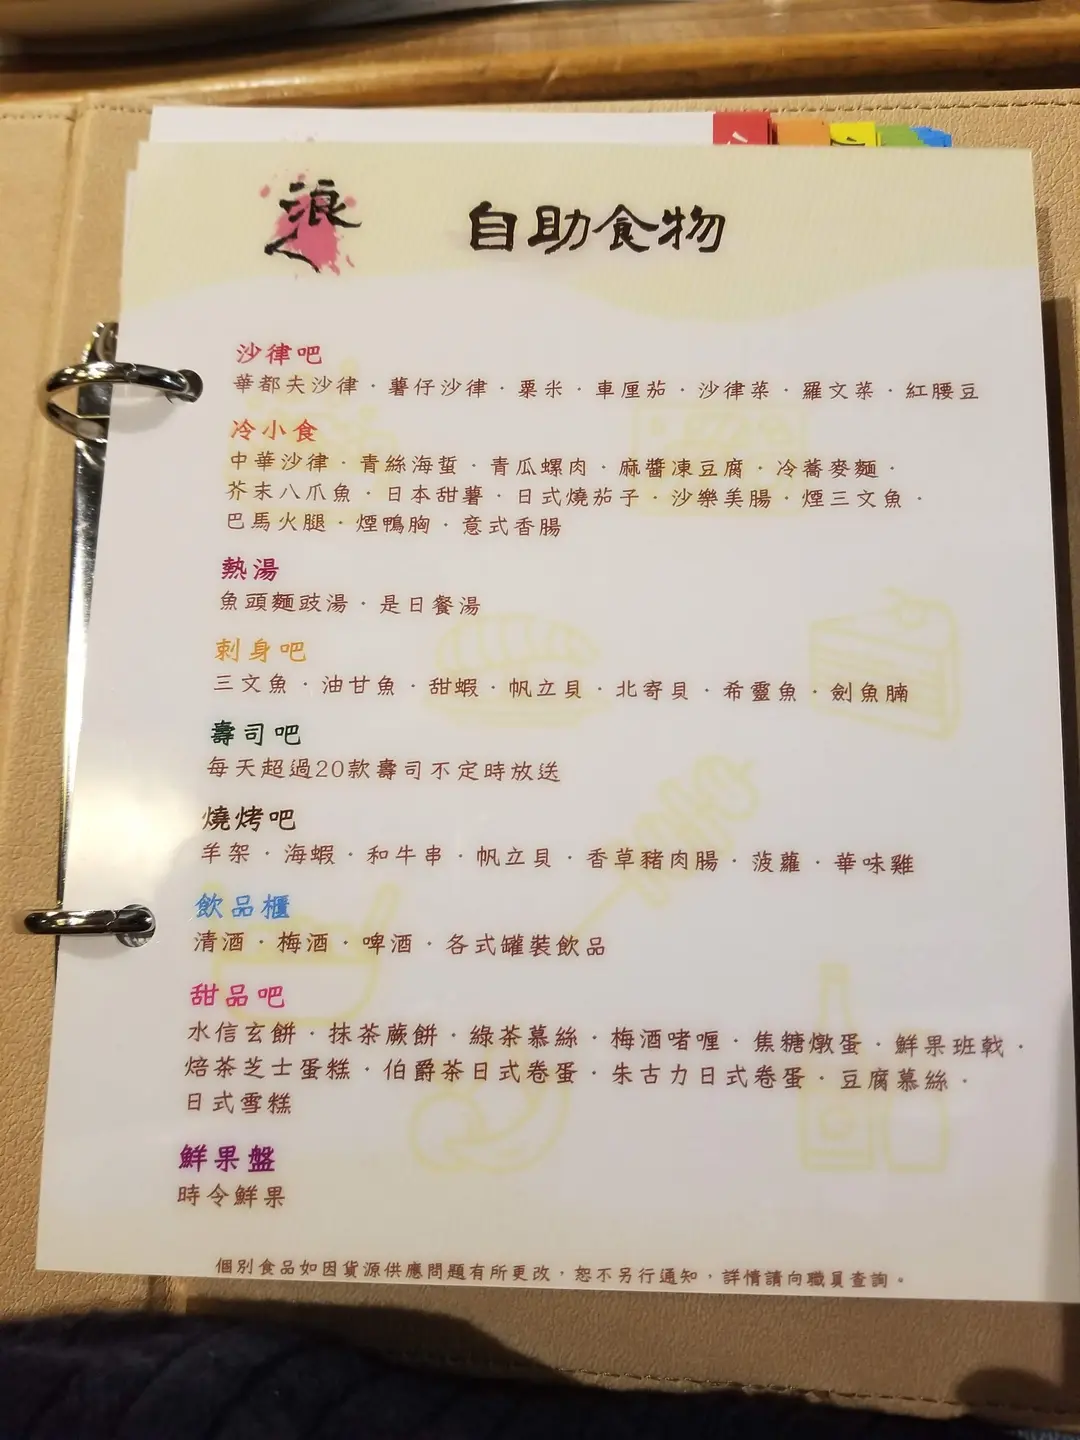 浪
自助食物
沙律吧
華都夫沙律．薯仔沙律．粟米．車厘茄．沙律菜．羅文菜．紅腰豆
冷小食
中華沙律．青絲海蜇．青瓜螺肉．麻醬凍豆腐．冷蕎麥麵．
芥末八爪魚．日本甜薯．日式燒茄子．沙樂美腸．煙三文魚．
巴馬火腿．煙鴨胸．意式香腸
熱湯
魚頭麵豉湯．是日餐湯
刺身吧
三文魚．油甘魚．甜蝦．帆立貝．北寄貝．希靈魚．劍魚腩
壽司吧
每天超過20款壽司不定時放送
燒烤吧
羊架．海蝦．和牛串．帆立貝．香草豬肉腸．菠蘿．華味雞
飲品櫃
清酒．梅酒．啤酒．各式罐裝飲品
甜品吧
水信玄餅．抹茶蕨餅．綠茶慕絲．梅酒啫喱．焦糖燉蛋．鮮果班戟．
焙茶芝士蛋糕．伯爵茶日式卷蛋．朱古力日式卷蛋．豆腐慕絲．
日式雪糕
鮮果盤
時令鮮果
個別食品如因貨源供應問題有所更改，恕不另行通知，詳情請向職員查詢。